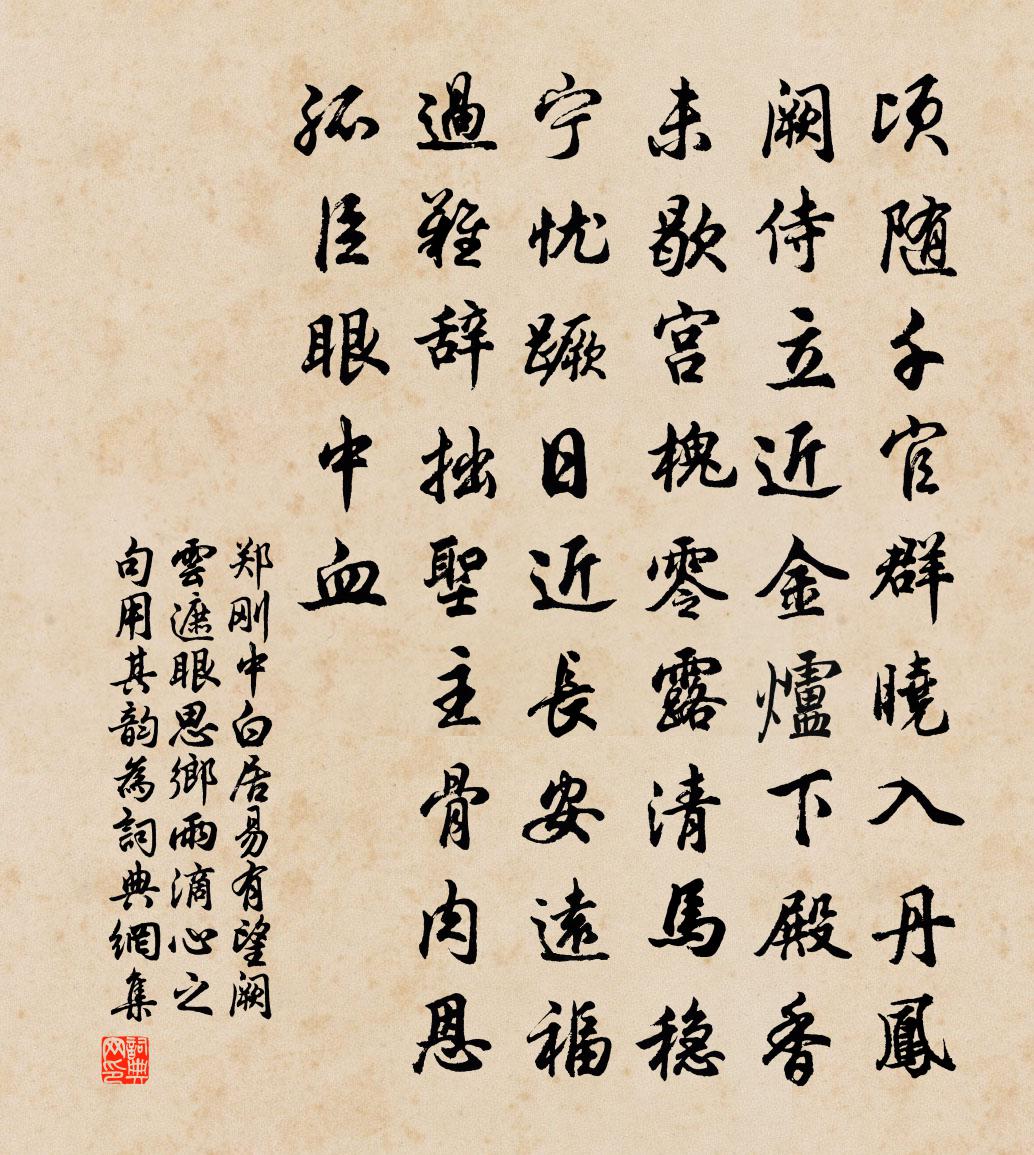 顷随千官群曉入丹鳳
阙侍立近金爐下殿香
未歇宫槐零露清馬稳
宁忧蹶日近長安遠福
過難辞拙聖主骨肉恩
孤臣眼中血
郑刚中白居易有望阙
雲遮眼思鄉雨滴心之
句用其韵為詞典網集
詞典网印